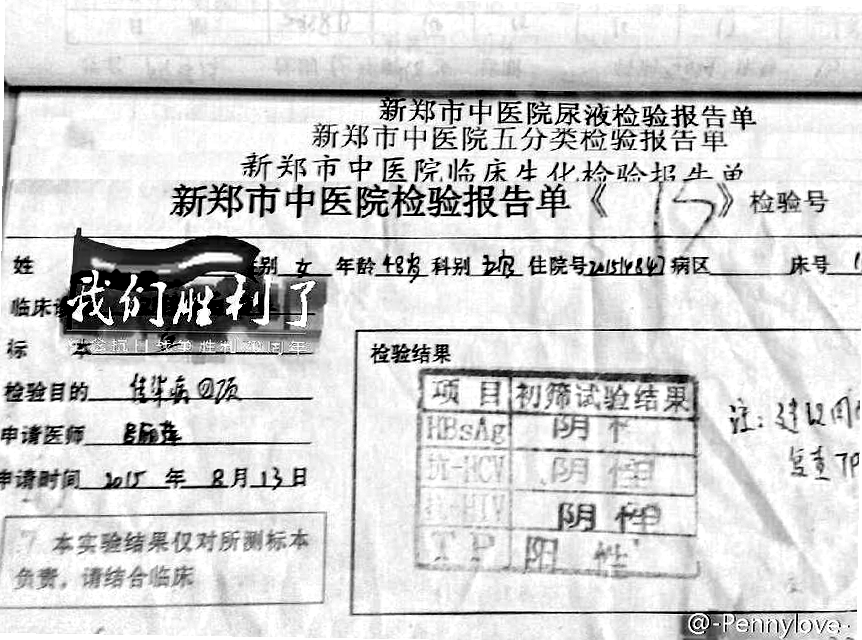 新郑市中医院尿液检验报告单
新郑市中医院五分类检验报告单
新郑市中医院临床生化检验报告单
新郑市中医院检验报告单《15》检验号
姓 别 女 年龄 48岁 科别 住院号 20151484 病区 床号 1
我们胜利了
纪念抗日战争胜利70周年
临床诊
标 本
检验目的 传染病四项
申请医师
申请时间 2015 年 8 月 13 日
7 本实验结果仅对所测标本
负责，请结合临床
检验结果
项 目 初筛试验结果
HBsAg 阴 性
抗-HCV 阴 性
抗-HIV 阴 性
T P 阳 性
注：建议
复查 TP
@-Pennylove-